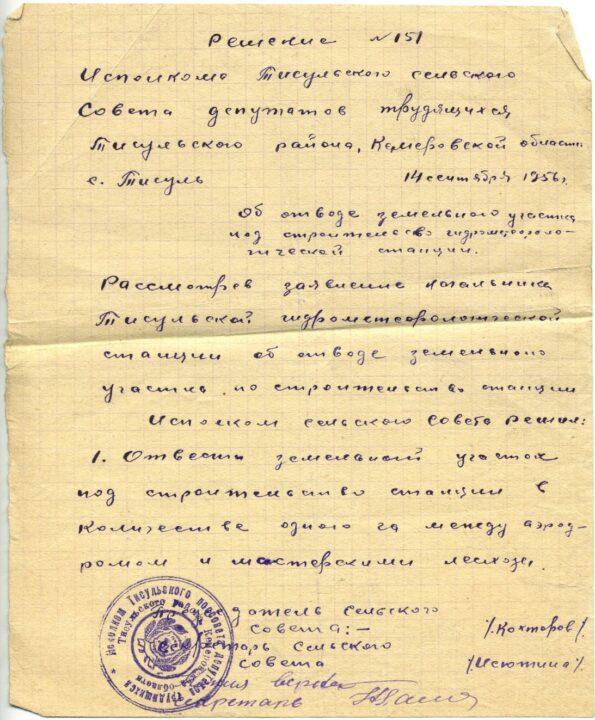 Решение №151
Исполкома Тисульского сельского
Совета депутатов трудящихся,
Тисульского района, Кемеровской области
с. Тисуль 14 сентября 1956 г.
Об отводе земельного участка
под строительство гидрометеороло-
гической станции.
Рассмотрев заявление начальника
Тисульской гидрометеорологической
станции об отводе земельного
участка по строительство станции
Исполком сельского Совета решил:
1. Отвести земельный участок
под строительство станции в
количестве одного га между аэрод-
ромом и мастерскими лесхоза.
Исполком Тисульского поссовета депутатов трудящихся
Тисульского района Кемеровской области
Пр датель сельского
совета:- /.Кохторов/.
Секретарь Сельского
совета /Исютина/.
Копия верна
Секретарь